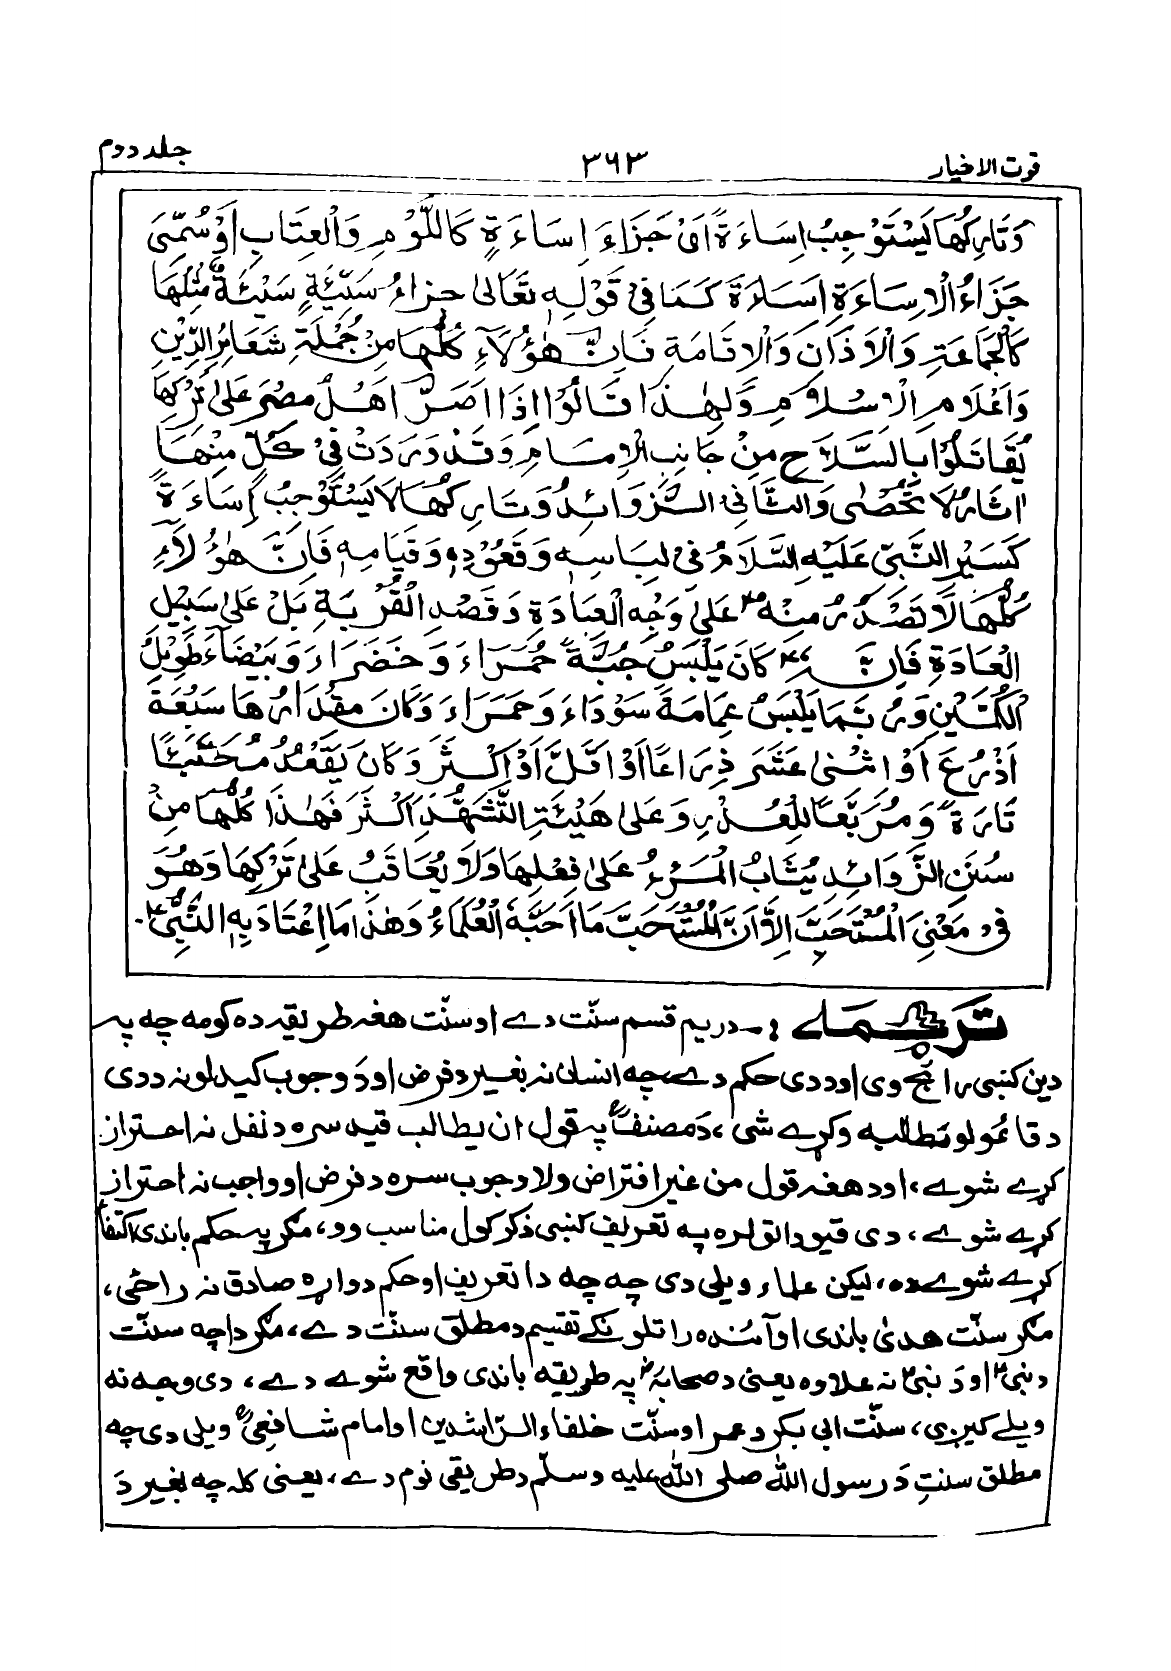 قوت الاخیار ۳۶۳ جلد دوم
وَتَارِكُهَا يَسْتَوْجِبُ اِسَاءَةً اَىْ جَزَاءَ اِسَاءَةٍ كَاللَّوْمِ وَالْعِتَابِ اَوْ سُمِّىَ
جَزَاءُ الْاِسَاءَةِ اِسَاءَةً كَمَا فِىْ قَوْلِهٖ تَعَالٰى جزاءُ سَيِّئَةٍ سَيِّئَةٌ مِّثْلُهَا
كَالْجَمَاعَةِ وَالْاَذَانِ وَالْاِقَامَةِ فَاِنَّ هٰؤُلَآءِ كُلَّهَا مِنْ جُمْلَةِ شَعَائِرِ الدِّيْنِ
وَاَعْلَامِ الْاِسْلَامِ وَلِهٰذَا قَالُوْا اِذَا اَصَرَّ اَهْلُ مِصْرَ عَلٰى تَرْكِهَا
يُقَاتَلُوْا بِالسِّلَاحِ مِنْ جَانِبِ الْاِمَامِ وَقَدْ وَرَدَتْ فِىْ كُلٍّ مِنْهَا
اٰثَارٌ لَا تُحْصٰى وَالثَّانِى الزَّوَائِدُ وَتَارِكُهَا لَا يَسْتَوْجِبُ اِسَاءَةً
كَسَيْرِ النَّبِىِّ عَلَيْهِ السَّلَامُ فِىْ لِبَاسِهٖ وَقُعُوْدِهٖ وَقِيَامِهٖ فَاِنَّ هٰؤُلَاءِ
كُلَّهَا لَا تَصْدُرُ مِنْهُ عَلٰى وَجْهِ الْعِبَادَةِ وَقَصْدِ الْقُرْبَةِ بَلْ عَلٰى سَبِيْلِ
الْعَادَةِ فَاِنَّهٗ كَانَ يَلْبَسُ جُبَّةً حَمْرَاءَ وَ خَضْرَاءَ وَ بَيْضَاءَ طَوِيْلَ
الْكُمَّيْنِ وَرُبَّمَا يَلْبَسُ عِمَامَةً سَوْدَاءَ وَحَمْرَاءَ وَكَانَ مِقْدَارُهَا سَبْعَةَ
اَذْرُعٍ اَوْ اِثْنٰى عَشَرَ ذِرَاعًا اَوْ اَقَلَّ اَوْ اَكْثَرَ وَكَانَ يَقْعُدُ مُحْتَبِئًا
تَارَةً وَ مُرَبَّعًا لِلْعُذْرِ وَعَلٰى هَيْئَةِ التَّشَهُّدِ اَكْثَرَ فَهٰذَا كُلُّهَا مِنْ
سُنَنِ الزَّوَائِدِ يُثَابُ الْمَرْءُ عَلٰى فِعْلِهَا وَلَا يُعَاقَبُ عَلٰى تَرْكِهَا وَهُوَ
فِىْ مَعْنَى الْمُسْتَحَبِّ اِلَّا اَنَّ الْمُسْتَحَبَّ مَا اَحَبَّهُ الْعُلَمَاءُ وَهٰذَا مَا اعْتَادَ بِهِ النَّبِىُّ
ترجمه :- دریم قسم سنّت دے او سنّت هغه طریقه ده کومه چه په
دین کښی رائج وی او ددی حکم دے، چه انسان نه بغیر د فرض او دَ وجوب کیدلو نه ددی
د قائمولو مطالبه وکړے شی، دَ مصنفؒ په قول ان یطالب قید سره د نفل نه احتراز
کړے شوے، او د هغه قول من غیر افتراض ولا وجوب سره د فرض او واجب نه احتراز
کړے شوے، دی قیود اتو لره په تعریف کښی ذکر کول مناسب وو، مگر په حکم باندی اکتفا
کړے شوے ده، لیکن علماء ویلی دی چه چه دا تعریف او حکم دواړه صادق نه راځی،
مگر سنّت هدیٰ باندی او آئنده راتلونکے تقسیم د مطلق سنّت دے، مگر دا چه سنّت
د نبیؐ او دَ نبیؐ نه علاوه یعنی د صحابهؓ په طریقه باندی واقع شوے دے، دی وجه نه
ویلے کیږی، سنّت ابی بکر د عمر او سنّت خلفاء الرّاشدین او امام شافعیؒ ویلی دی چه
مطلق سنتِ دَ رسول الله صلی الله علیه وسلّم د طریقی نوم دے، یعنی کله چه بغیر دَ